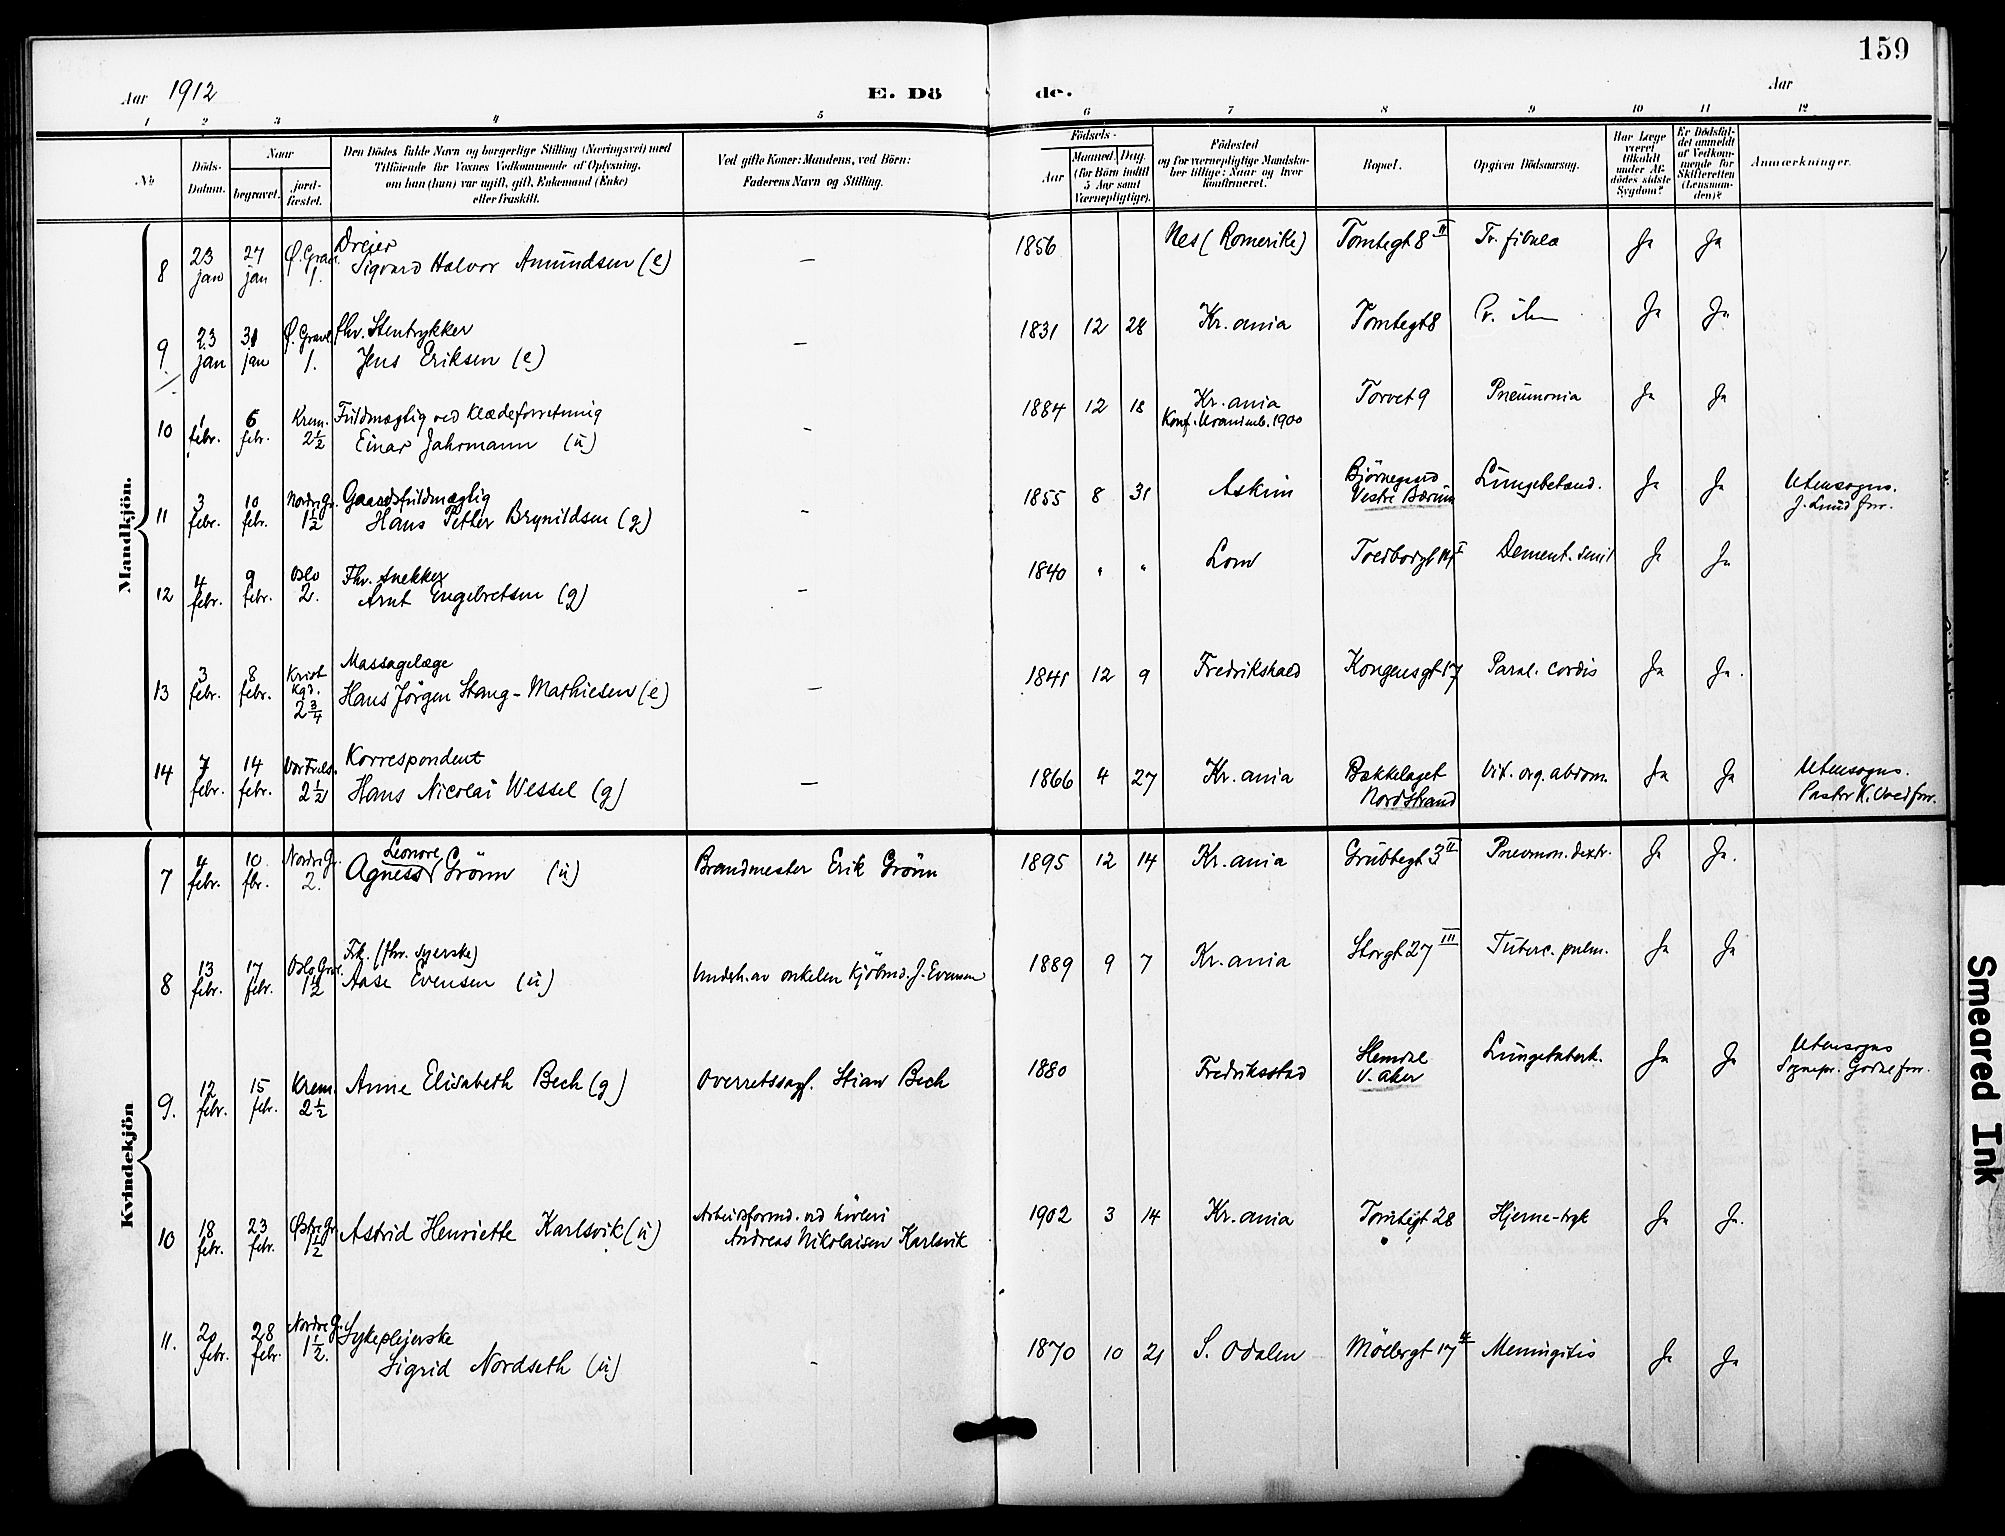 159
Aar 1912
E. Dö de.
Aar
1 2 3 4 5 6 7 8 9 10 11 12
No.
Döds-Datum.
Naar
begravet.
jord-fæstet.
Den Dödes fulde Navn og borgerlige Stilling (Næringsvei) med
Tilföiende for Voxnes Vedkommende af Oplysning,
om han (hun) var ugift, gift, Enkemand (Enke)
eller fraskilt.
Ved gifte Koner: Mandens, ved Börn:
Faderens Navn og Stilling.
Födsels-
Aar
Maaned. Dag.
(for Börn indtil
5 Aar samt
Værnepligtige).
Födested
og for værnepligtige Mandska-
ber tillige: Naar og hvor
konfirmeret.
Bopæl.
Opgiven Dödsaarsag.
Har Læge
været
tilkaldt
under Af-
dödes sidste
Sygdom?
Er Dödsfal-
det anmeldt
af Vedkom-
mende for
Skifteretten
(Lensman-
den)?
Anmærkninger.
Mandkjön.
8 23 jan 27 jan Ø. Grav. 1. Dreier
Sigvard Halvor Amundsen (e) — 1856 Nes (Romerike) Tomtegt 8 II Fr. fibulæ Ja Ja
9 23 jan 31 jan Ø. Gravl. 1. fhv. Stentrykker
Jens Eriksen (e) — 1831 12 28 Kr.ania Tomtegt 8 Ja Ja
10 1 febr. 6 febr. Krem. 2½ Fuldmægtig ved klædeforretning
Einar Jahrmann (u) - 1884 12 18 Kr.ania
Konf. Uranienb. 1900 Torvet 9 Pneumonia Ja Ja
11 3 febr. 10 febr. Nordre Gr. 1½ Gaardsfuldmægtig
Hans Petter Brynildsen (g) - 1855 8 31 Askim Bjørnegaard
Vestre Bærum Lungebetænd. Ja Ja Utensogns.
J. Lund forr.
12 4 febr. 9 febr. Oslo 2. Fhv. Snekker
Arnt Engebretsen (g) - 1840 " " Lom Toldbodgt 14 I Dement. senil Ja Ja
13 3 febr. 8 febr. Krist kgd. 2¾ Massagelæge
Hans Jörgen Stang-Mathiesen (e) — 1841 12 9 Fredrikshald Kongensgt 17 Paral. cordis Ja Ja.
14 7 febr. 14 febr. Vor Frels. 2½ Korrespondent
Hans Nicolai Wessel (g) — 1866 4 27 Kr.ania Bækkelaget
Nordstrand Vit. org. abdom. Ja Ja Utensogns.
Pastor K. Vold forr.
Kvindekjön
7 4 febr. 10 fbr. Nordre Gr. 2. Leonore
Agness Grönn (u) Brandmester Erik Grönn 1895 12 14 Kr.ania Grubbegt 3 II Pneumon. dextr. Ja Ja.
8 13 febr. 17 febr. Oslo Gr. 1½ Frk. (fhv. syerske)
Aase Evensen (u) Undsh. av onkelen Kjöbmd. J. Evensen 1889 9 7 Kr.ania Storgt 27 III Tuberc. pulm. Ja Ja
9. 12 febr. 15 febr. Krem. 2½ Anne Elisabeth Bech (g) Overretssagf. Stian Bech 1880 Fredriksstad Hemdal
V. Aker Lungetuberk. Ja Ja Utensogns
Sognepr. Gorde forr.
10 18 febr. 23 febr. Østre Gr. 1½ Astrid Henriette Karlsvik (u) Arbeidsformd. ved høvleri
Andreas Nikolaisen Karlsvik 1902 3 14 Kr.ania Tomtegt 28 Hjerne-tryk Ja Ja.
11. 20 febr. 28 febr. Nordre Gr. 1½. Sykepleierske
Sigrid Nordseth (u) - 1870 10 21 S. Odalen Möllergt 17 II Meningitis Ja Ja
Smeared Ink